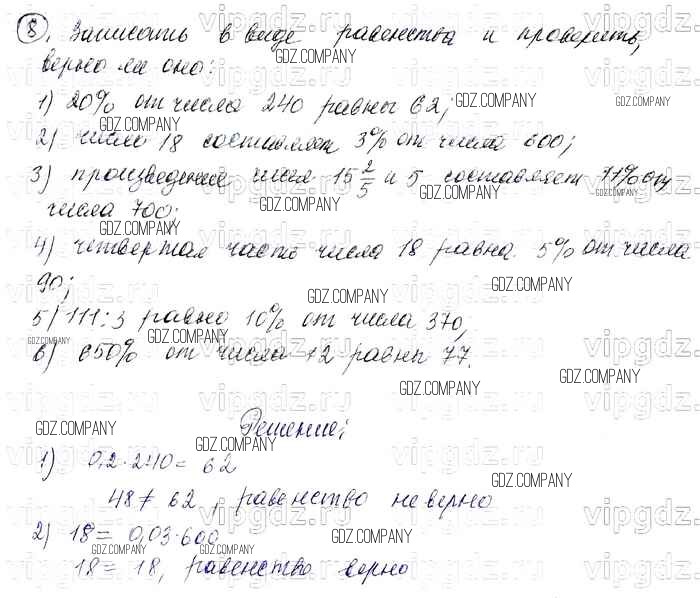 8. Записать в виде равенства и проверить,
верно ли оно:
1) 20% от числа 240 равны 62;
2) число 18 составляет 3% от числа 600;
3) произведение чисел 15 2/5 и 5 составляет 11% от
числа 700;
4) четвертая часть числа 18 равна 5% от числа
90;
5) 111:3 равно 10% от числа 370,
6) 650% от числа 12 равны 77.
Решение:
1) 0,2·240 = 62
48 ≠ 62, равенство неверно
2) 18 = 0,03·600
18 = 18, равенство верно
GDZ.COMPANY
vipgdz.ru